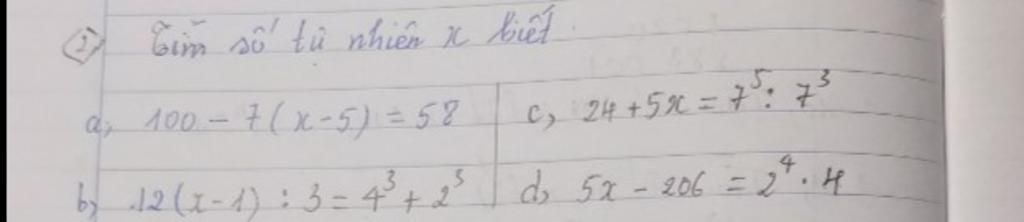 2) Tìm số tự nhiên x biết
a, 100 - 7(x-5) = 58
c, 24 + 5x = 7⁵ : 7³
b, 12(x-1) : 3 = 4³ + 2³
d, 5x - 206 = 2⁴ . 4